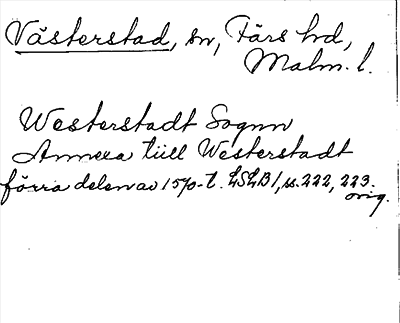 Västerstad, sn, Färs hd,
Malm. l.
Westerstadt Sognn
Annexa till Westerstadt
förra delen av 1570-t. LSLB 1, ss. 222, 223.
orig.